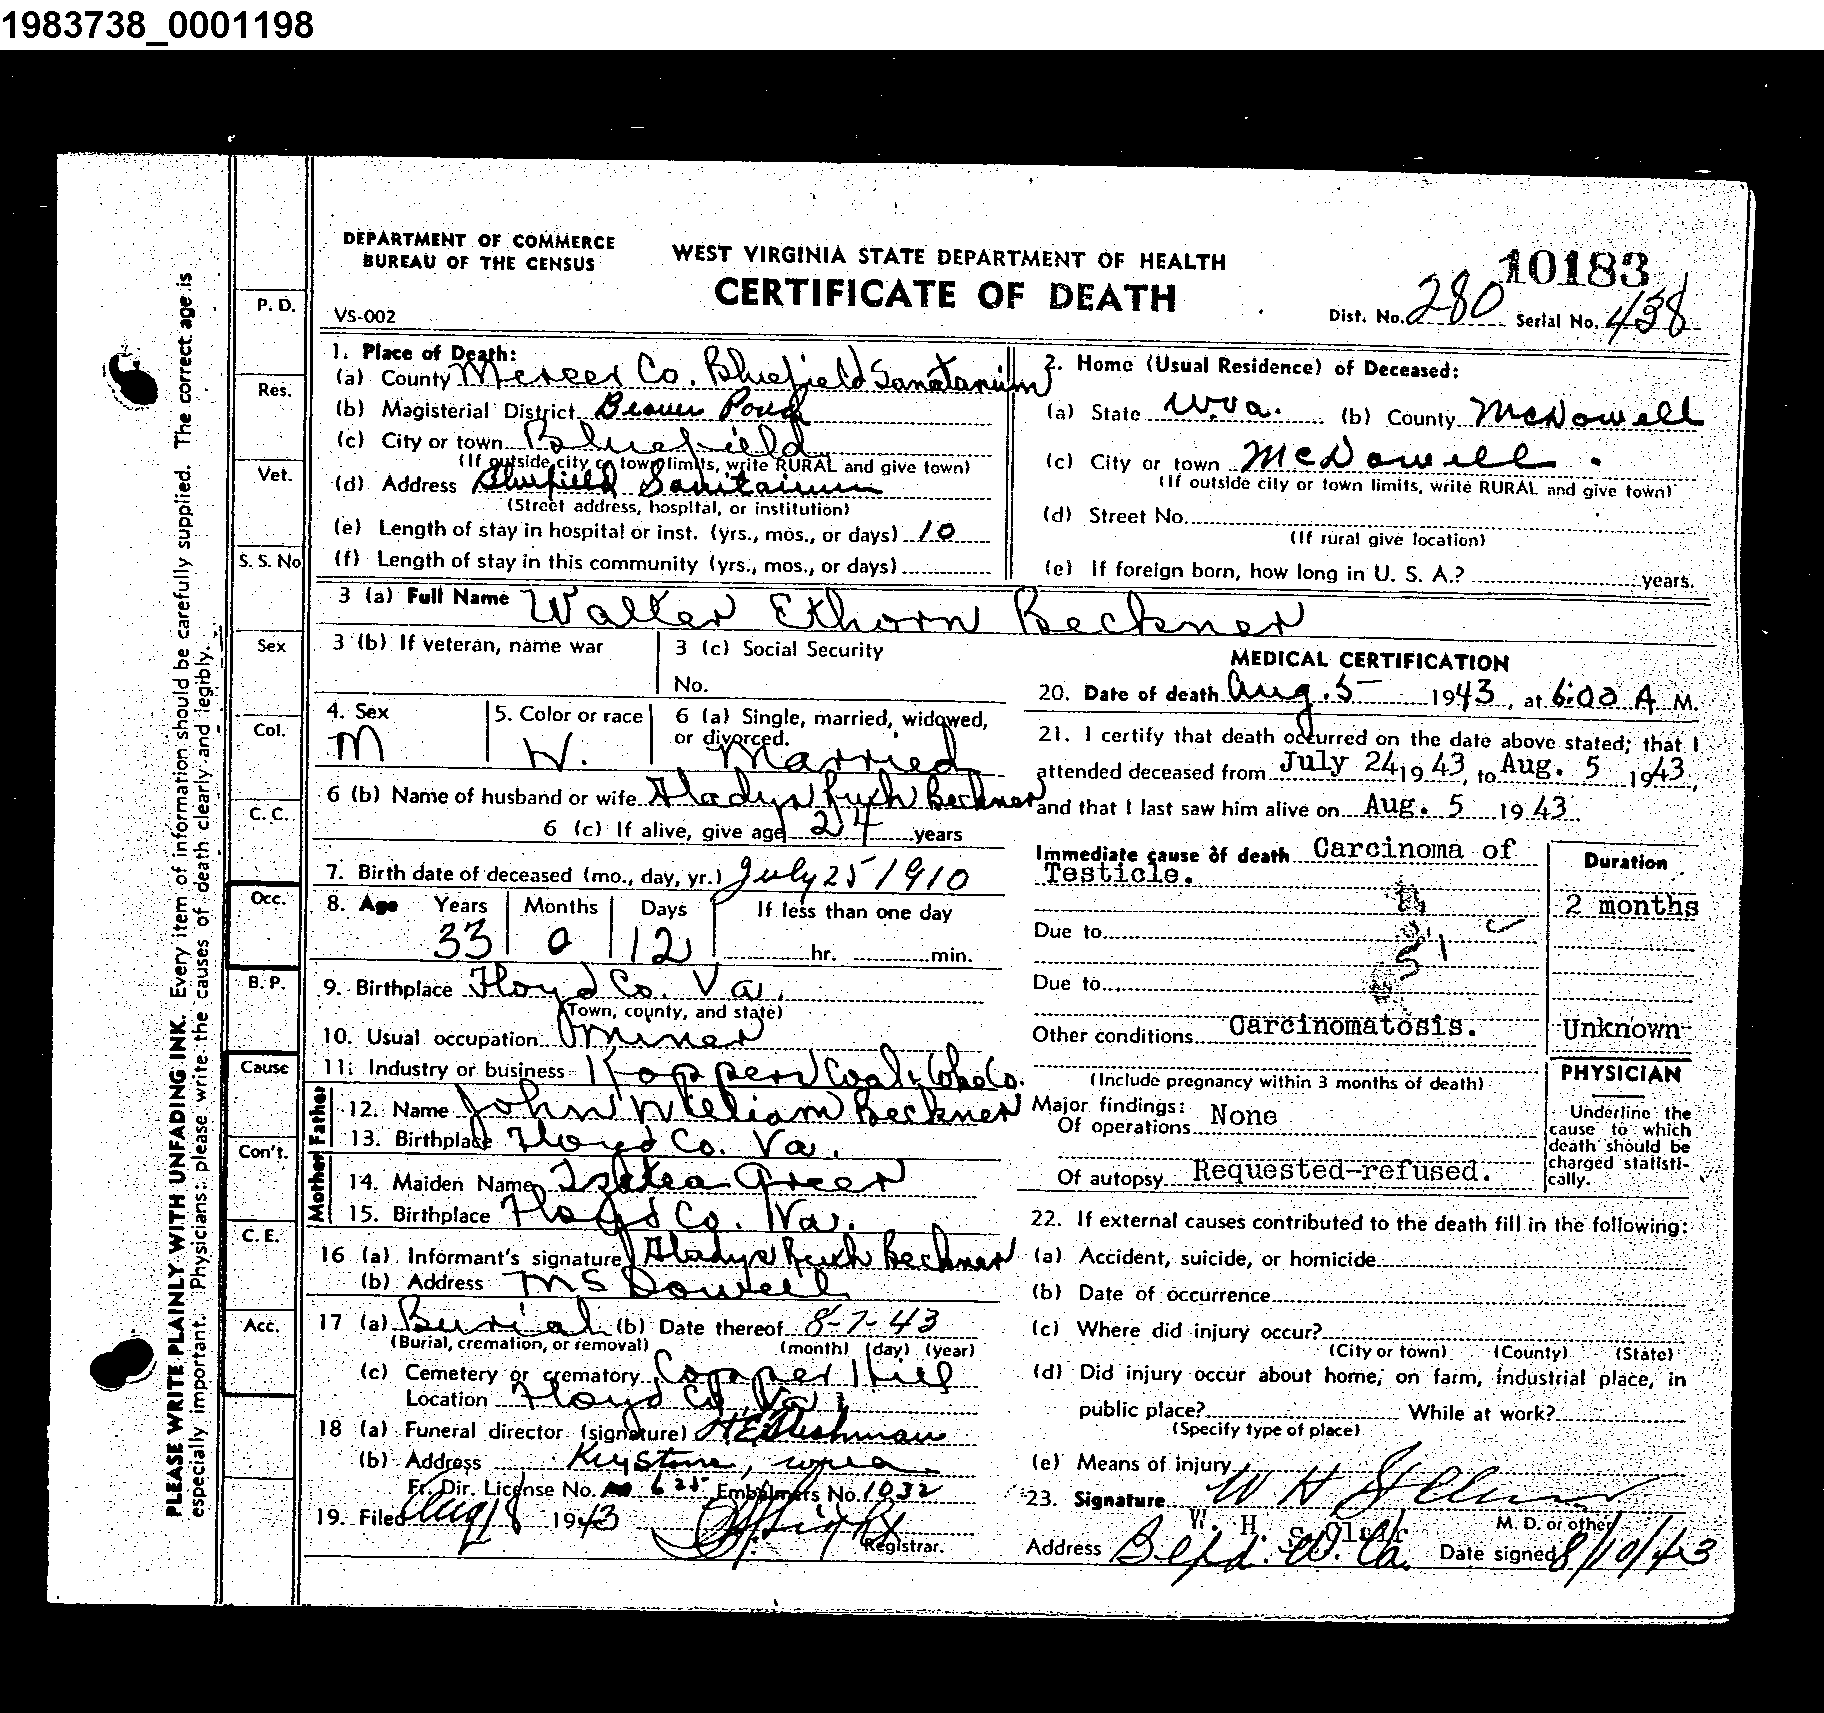 1983738_0001198
DEPARTMENT OF COMMERCE
BUREAU OF THE CENSUS
VS-002
WEST VIRGINIA STATE DEPARTMENT OF HEALTH
CERTIFICATE OF DEATH
10183
Dist. No. 280 Serial No. 438
PLEASE WRITE PLAINLY WITH UNFADING INK. Every item of information should be carefully supplied. The correct age is
especially important. Physicians: please write the causes of death clearly and legibly.
P. D.
Res.
Vet.
S. S. No
Sex
Col.
C. C.
Occ.
B. P.
Cause
Con't.
C. E.
Acc.
1. Place of Death:
(a) County Mercer Co. Bluefield Sanatarium
(b) Magisterial District Beaver Pond
(c) City or town Bluefield
(If outside city or town limits, write RURAL and give town)
(d) Address Bluefield Sanitarium
(Street address, hospital, or institution)
(e) Length of stay in hospital or inst. (yrs., mos., or days) 10
(f) Length of stay in this community (yrs., mos., or days)
2. Home (Usual Residence) of Deceased:
(a) State W.Va. (b) County McDowell
(c) City or town McDowell.
(If outside city or town limits, write RURAL and give town)
(d) Street No.
(If rural give location)
(e) If foreign born, how long in U. S. A.? years.
3 (a) Full Name Walter Ethorn Beckner
3 (b) If veteran, name war
3 (c) Social Security
No.
4. Sex
M
5. Color or race
W.
6 (a) Single, married, widowed,
or divorced.
Married
6 (b) Name of husband or wife Gladys Ruth Beckner
6 (c) If alive, give age 24 years
7. Birth date of deceased (mo., day, yr.) July 25 1910
8. Age Years Months Days If less than one day
33 0 12 hr. min.
9. Birthplace Floyd Co. Va.
(Town, county, and state)
10. Usual occupation Miner
11. Industry or business Koppers Coal & Coke Co.
Father
12. Name John William Beckner
13. Birthplace Floyd Co. Va.
Mother
14. Maiden Name Greer
15. Birthplace Floyd Co. Va.
16 (a) Informant's signature Gladys Ruth Beckner
(b) Address McDowell
17 (a) Burial (b) Date thereof 8-7-43
(Burial, cremation, or removal) (month) (day) (year)
(c) Cemetery or crematory Copper Hill
Location Floyd Co. Va.
18 (a) Funeral director (signature)
(b) Address Keystone, W.Va.
Fr. Dir. License No. 625 Embalmers No. 1032
19. Filed Aug 18 1943
Registrar.
MEDICAL CERTIFICATION
20. Date of death Aug. 5 1943, at 6:00 A M.
21. I certify that death occurred on the date above stated; that I
attended deceased from July 24 1943, to Aug. 5 1943,
and that I last saw him alive on Aug. 5 1943.
Immediate cause of death Carcinoma of
Testicle.
Due to
Due to
Other conditions Carcinomatosis.
(Include pregnancy within 3 months of death)
Duration
2 months
Unknown
Major findings:
Of operations None
Of autopsy Requested-refused.
PHYSICIAN
Underline the
cause to which
death should be
charged statisti-
cally.
22. If external causes contributed to the death fill in the following:
(a) Accident, suicide, or homicide
(b) Date of occurrence
(c) Where did injury occur?
(City or town) (County) (State)
(d) Did injury occur about home, on farm, industrial place, in
public place? While at work?
(Specify type of place)
(e) Means of injury
23. Signature W H
W. H.
M. D. or other
Address Befd. W. Va. Date signed 8/10/43